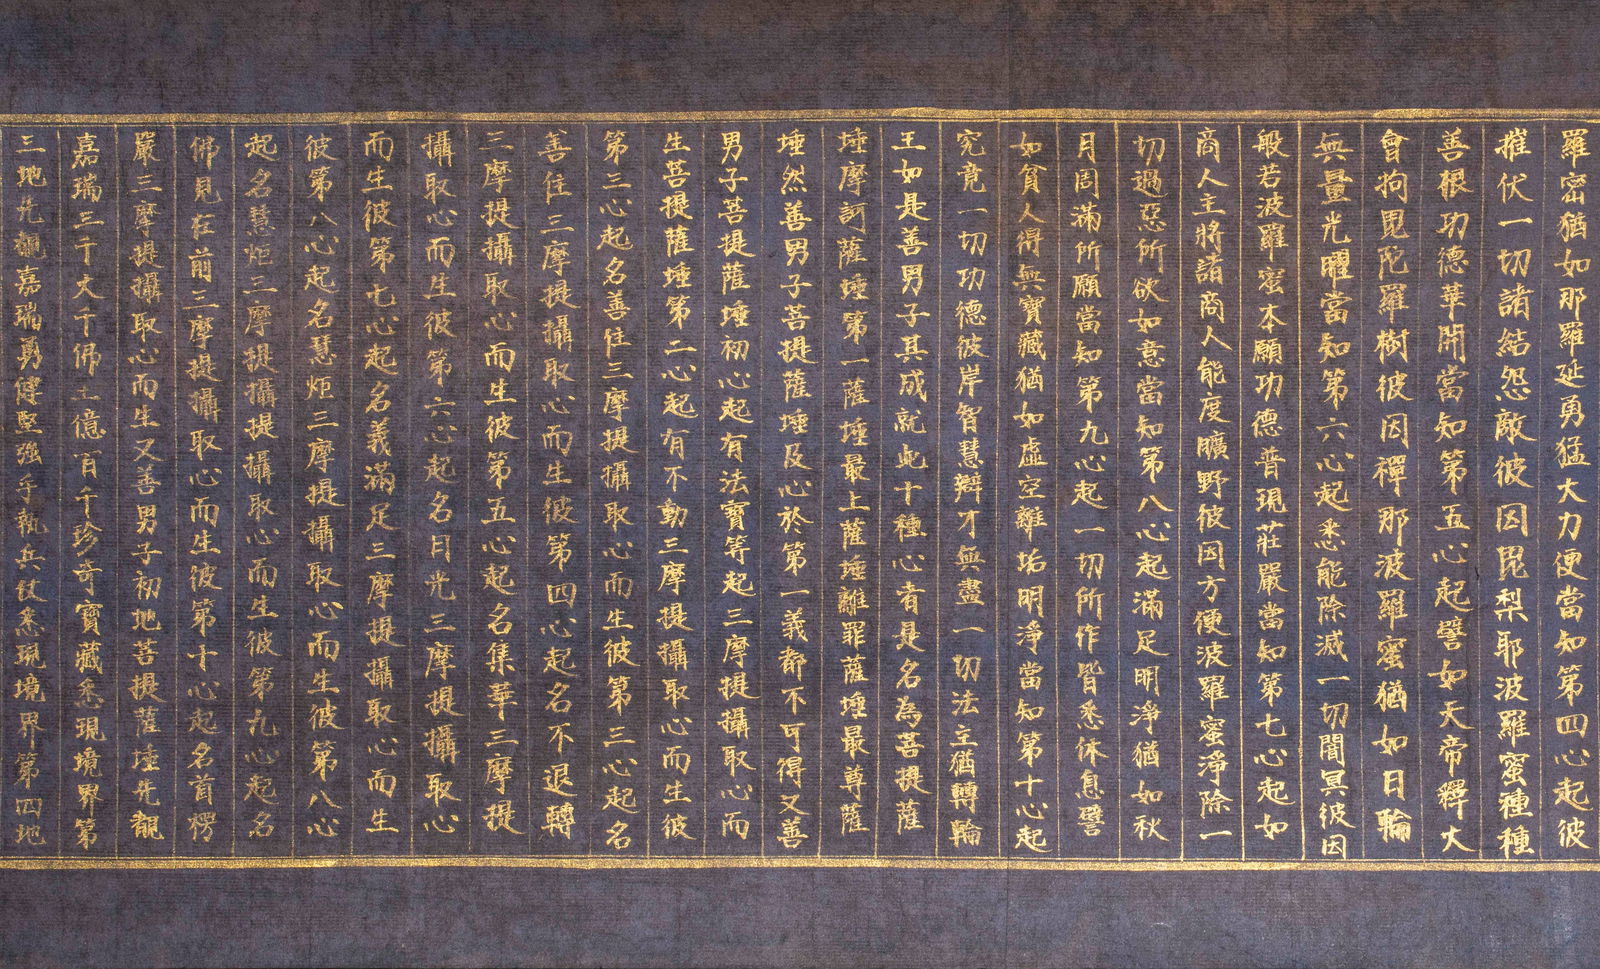 羅蜜猶如那羅延勇猛大力便當知第四心起彼
摧伏一切諸結怨敵彼因毘梨耶波羅蜜種種
善根功德華開當知第五心起譬如天帝釋大
會拘毘陀羅樹彼因禪那波羅蜜猶如日輪
無量光曜當知第六心起悉能除滅一切闇冥彼因
般若波羅蜜本願功德普現莊嚴當知第七心起如
商人主將諸商人能度曠野彼因方便波羅蜜淨除一
切過惡所欲如意當知第八心起滿足明淨猶如秋
月周滿所願當知第九心起一切所作皆悉休息譬
如貧人得無寶藏猶如虛空離垢明淨當知第十心起
究竟一切功德彼岸智慧辯才無盡一切法主猶轉輪
王如是善男子其成就此十種心者是名為菩提薩
埵摩訶薩埵第一薩埵最上薩埵離罪薩埵最尊薩
埵然善男子菩提薩埵及心於第一義都不可得又善
男子菩提薩埵初心起有法寶等起三摩提攝取心而
生菩提薩埵第二心起有不動三摩提攝取心而生彼
第三心起名善住三摩提攝取心而生彼第三心起名
善住三摩提攝取心而生彼第四心起名不退轉
三摩提攝取心而生彼第五心起名集華三摩提
攝取心而生彼第六心起名日光三摩提攝取心
而生彼第七心起名義滿足三摩提攝取心而生
彼第八心起名慧炬三摩提攝取心而生彼第八心
起名慧炬三摩提攝提攝取心而生彼第九心起名
佛見在前三摩提攝取心而生彼第十心起名首楞
嚴三摩提攝取心而生又善男子初地菩提薩埵先覩
嘉瑞三千大千佛土億百千珍奇寶藏悉現境界第
三地先覩嘉瑞勇健堅強手執兵仗悉現境界第四地